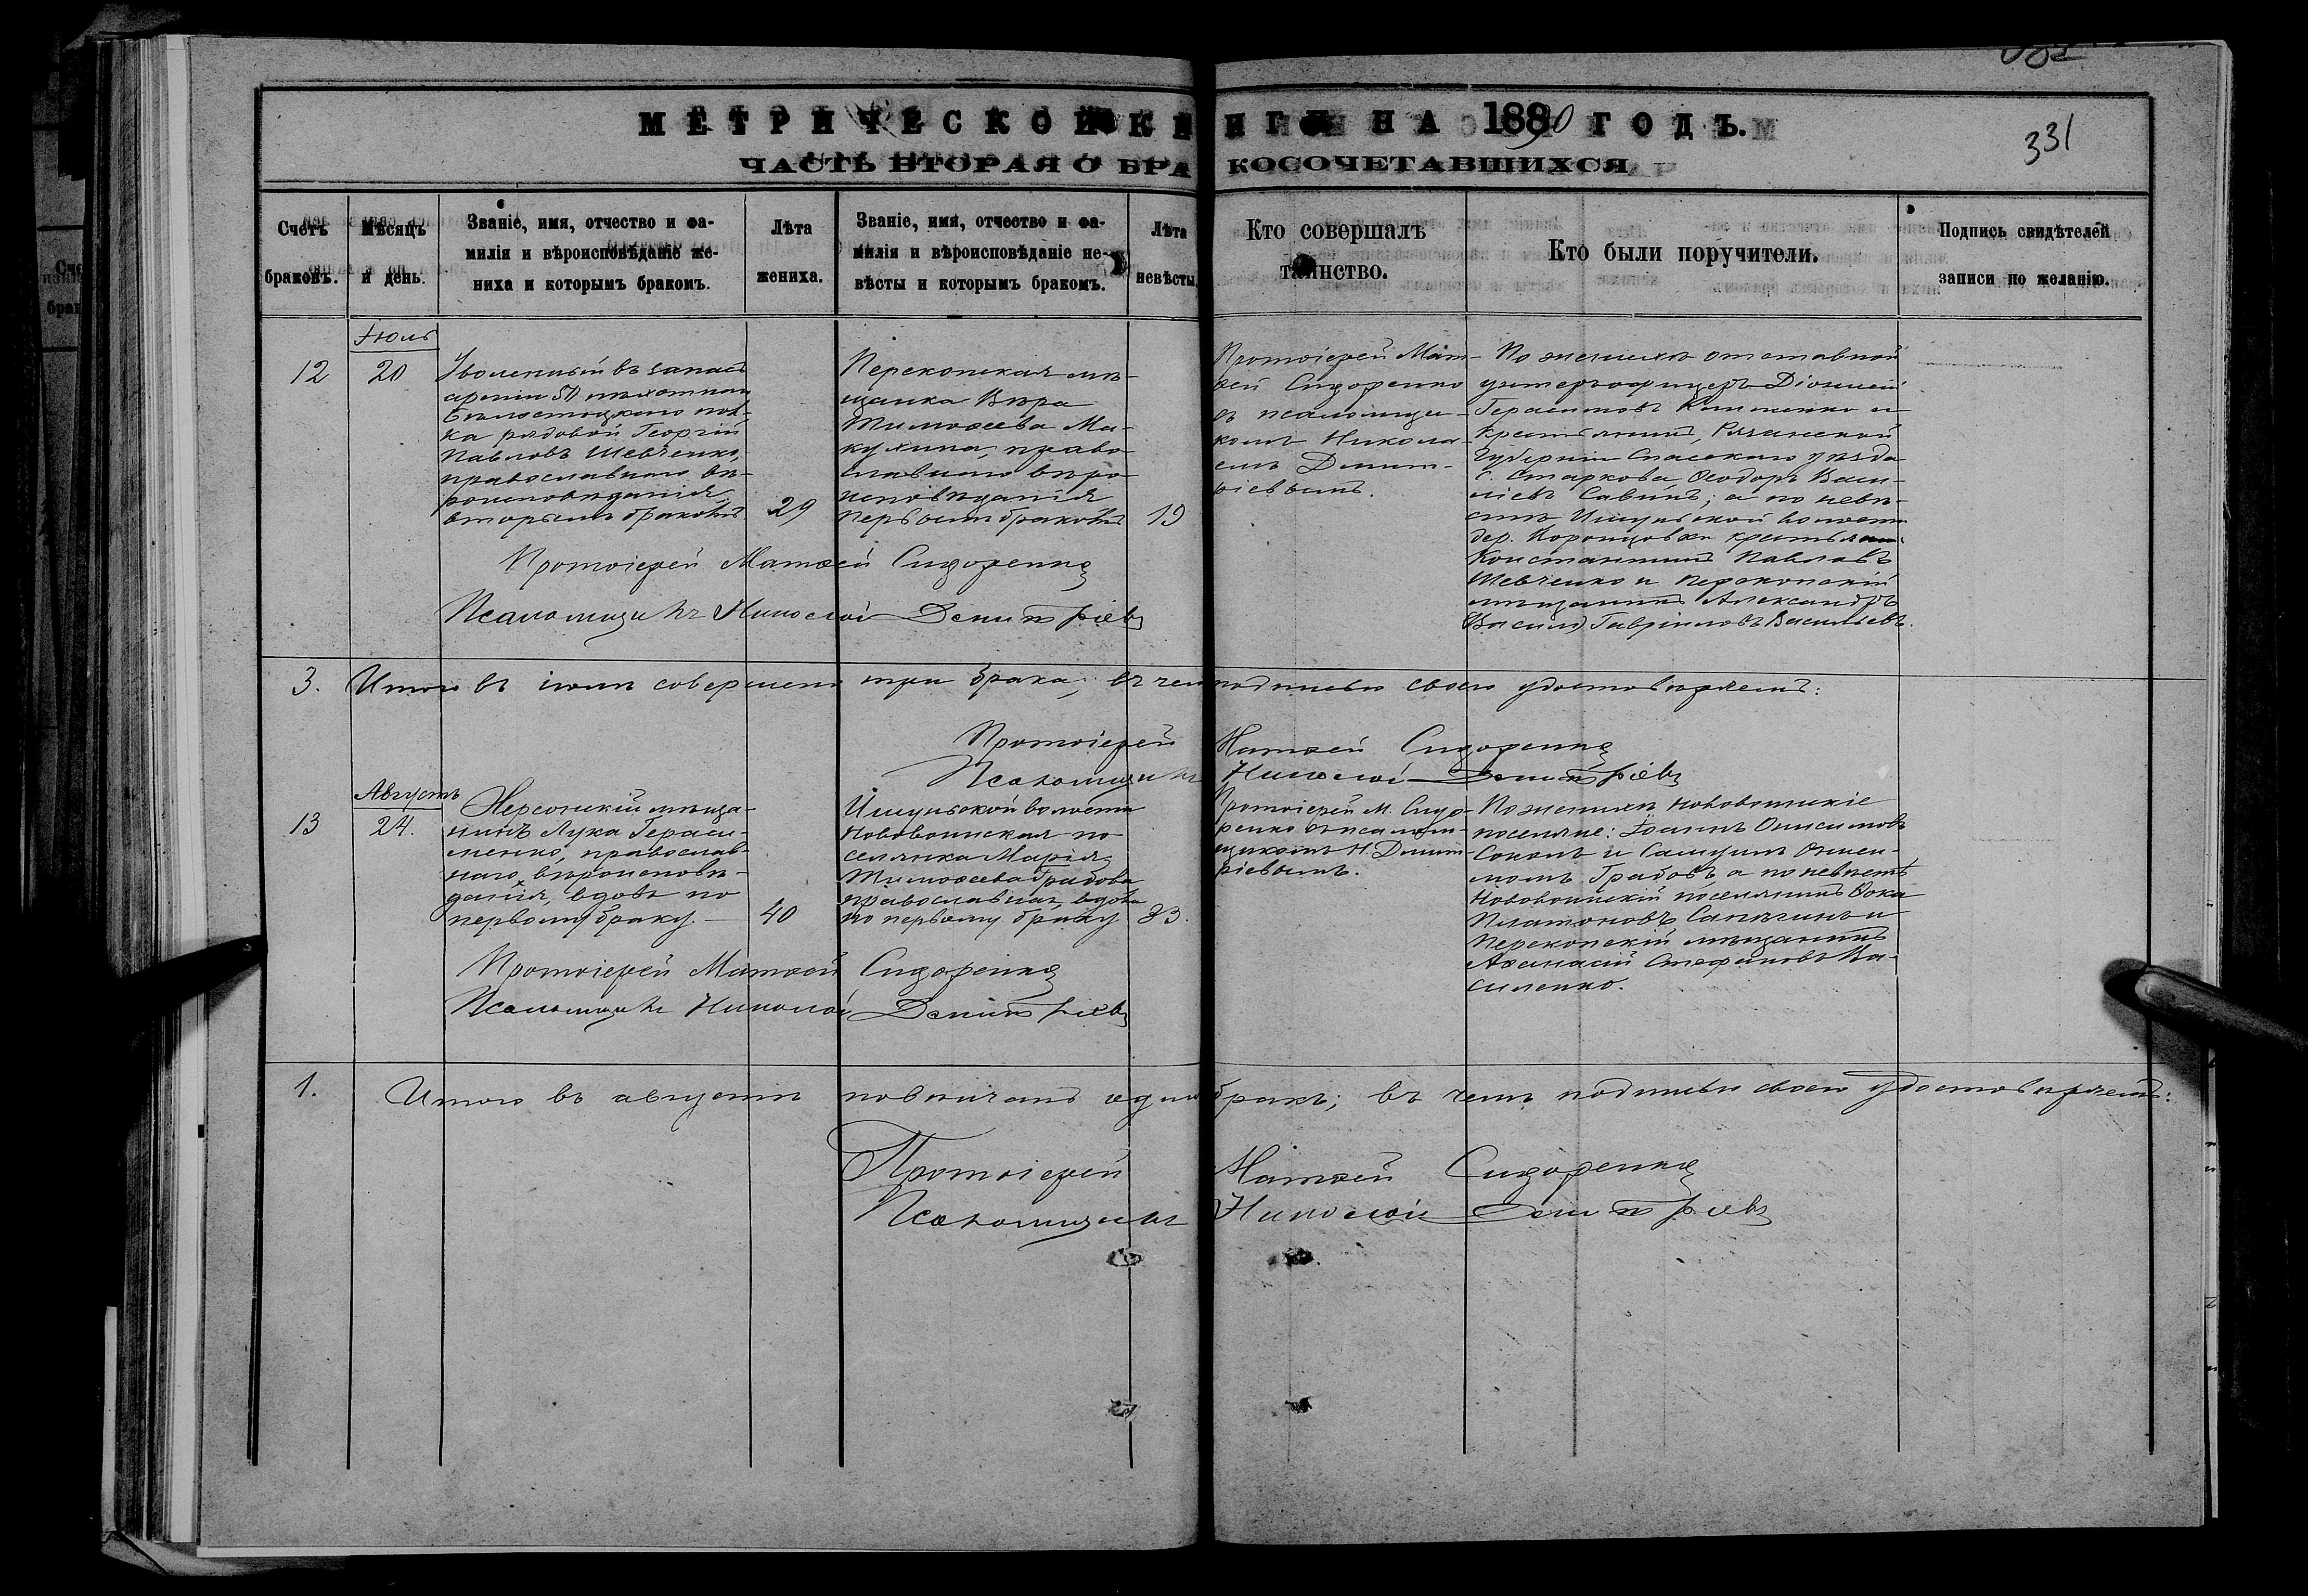 МЕТРИЧЕСКОЙ КНИГИ НА 1890 ГОДЪ.
331
ЧАСТЬ ВТОРАЯ О БРАКОСОЧЕТАВШИХСЯ
Счетъ браковъ.
Мѣсяцъ и день.
Званіе, имя, отчество и фа-
милія и вѣроисповѣданіе же-
ниха и которымъ бракомъ.
Лѣта
жениха.
Званіе, имя, отчество и фа-
милія и вѣроисповѣданіе не-
вѣсты и которымъ бракомъ.
Лѣта
невѣсты.
Кто совершалъ
таинство.
Кто были поручители.
Подпись свидѣтелей
записи по желанію.
Іюль
12
20
Уволенный въ запасъ
арміи 51 пѣхотнаго
Бѣлостоцкаго пол-
ка рядовой Георгій
Павловъ Шевченко,
православнаго вѣ-
роисповѣданія,
вторымъ бракомъ
29
Перекопская мѣ-
щанка Вѣра
Тимоѳеева Ма-
кухина, право-
славнаго вѣро-
исповѣданія
первымъ бракомъ
19
Протоіерей Мат-
ѳей Сидоренко
съ псаломщи-
комъ Никола-
емъ Димит-
ріевымъ.
По женихѣ отставной
унтеръ-офицеръ Діонисій
Герасимовъ Клименко и
крестьянинъ, Рязанской
Губерніи Спасскаго уѣзда
с. Старкова, Ѳеодоръ Васи-
ліевъ Савинъ; а по невѣ-
стѣ Ишуньской волости
дер. Воронцовки крестьянинъ
Константинъ Павловъ
Шевченко и Перекопскій
мѣщанинъ Александръ
(Василій) Гавріиловъ Васильевъ.
Протоіерей Матѳей Сидоренко
Псаломщикъ Николай Димитріевъ
3. Итого въ іюлѣ совершено три брака; въ чемъ подписью своею удостовѣряемъ:
Протоіерей Матѳей Сидоренко
Псаломщикъ Николай Димитріевъ
Августъ
13
24.
Херсонскій мѣща-
нинъ Лука Гераси-
менко, православ-
наго вѣроисповѣ-
данія, вдовъ по
первому браку.
40
Ишуньской волости
Нововоинская по-
селянка Марія
Тимоѳеева Грабова
православная, вдова
по первому браку
33.
Протоіерей М. Сидо-
ренко съ псалом-
щикомъ Н. Димит-
ріевымъ.
По женихѣ Нововоинскіе
поселяне: Іоаннъ Онисимовъ
Соколъ и Самуилъ
Грабовъ, а по невѣстѣ
Нововоинскій поселянинъ Ѳока
Платоновъ и
Перекопскій мѣщанинъ
Аѳанасій Стефановъ Ва-
силенко.
Протоіерей Матѳей Сидоренко
Псаломщикъ Николай Димитріевъ
1. Итого въ августѣ повѣнчанъ одинъ бракъ; въ чемъ подписью своею удостовѣряемъ:
Протоіерей Матѳей Сидоренко
Псаломщикъ Николай Димитріевъ